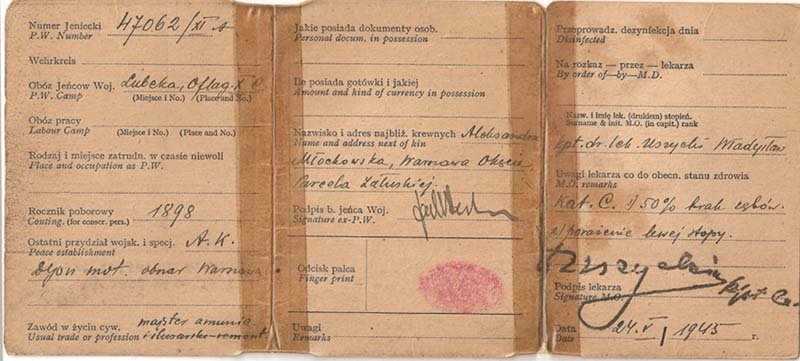 Numer Jeniecki 47062/XI A
P.W. Number
Wehrkreis
Obóz Jeńców Woj. Lubeka, Oflag X C
P.W. Camp (Miejsce i No.) (Place and No.)
Obóz pracy
Labour Camp (Miejsce i No.) (Place and No.)
Rodzaj i miejsce zatrudn. w czasie niewoli
Place and occupation as P.W.
Rocznik poborowy 1898
Conting. (for conscr. pers.)
Ostatni przydział wojsk. i specj. A.K.
Peace establishment
mot. Warszawa
Zawód w życiu cyw. majster
Usual trade or profession i ślusarsko-remont
Jakie posiada dokumenty osob.
Personal docum. in possession
Ile posiada gotówki i jakiej
Amount and kind of currency in possession
Nazwisko i adres najbliż. krewnych Aleksandra
Name and address next of kin
Młochowska, Warszawa Okęcie
Parcela Załuskiej
Podpis b. jeńca Woj.
Signature ex-P.W.
Odcisk palca
Finger print
Uwagi
Remarks
Przeprowadz. dezynfekcja dnia
Disinfected
Na rozkaz — przez — lekarza
By order of—by—M.D.
Nazw. i imię lek. (drukiem) stopień.
Surname & init. M.O. (in capit.) rank
kpt. dr. lek. Uszycki Władysław
Uwagi lekarza co do obecn. stanu zdrowia
M.O. remarks
Kat. C. 1/ 50% brak zębów.
2/ porażenie lewej stopy.
Podpis lekarza
Signature M.O.
Data 24.V 1945 r.
Date